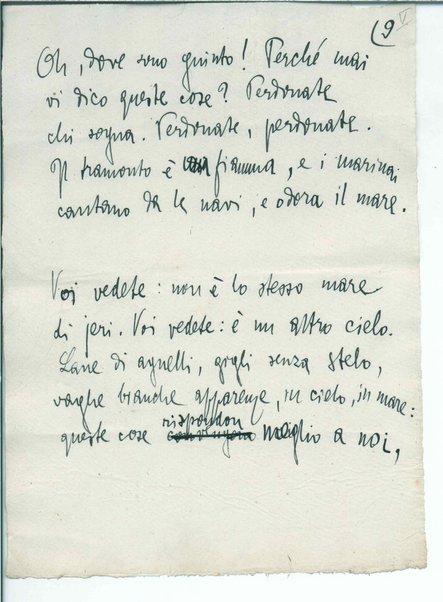 (9
V
Oh, dove sono giunto! Perché mai
vi dico queste cose? Perdonate
chi sogna. Perdonate, perdonate.
Il tramonto è fiamma, e i marinai
cantano da le navi, e odora il mare.
Voi vedete: non è lo stesso mare
di jeri. Voi vedete: è un altro cielo.
Lane di agnelli, gigli senza stelo,
vaghe bianche apparenze, in cielo, in mare:
rispondon
queste cose convengono meglio a noi,